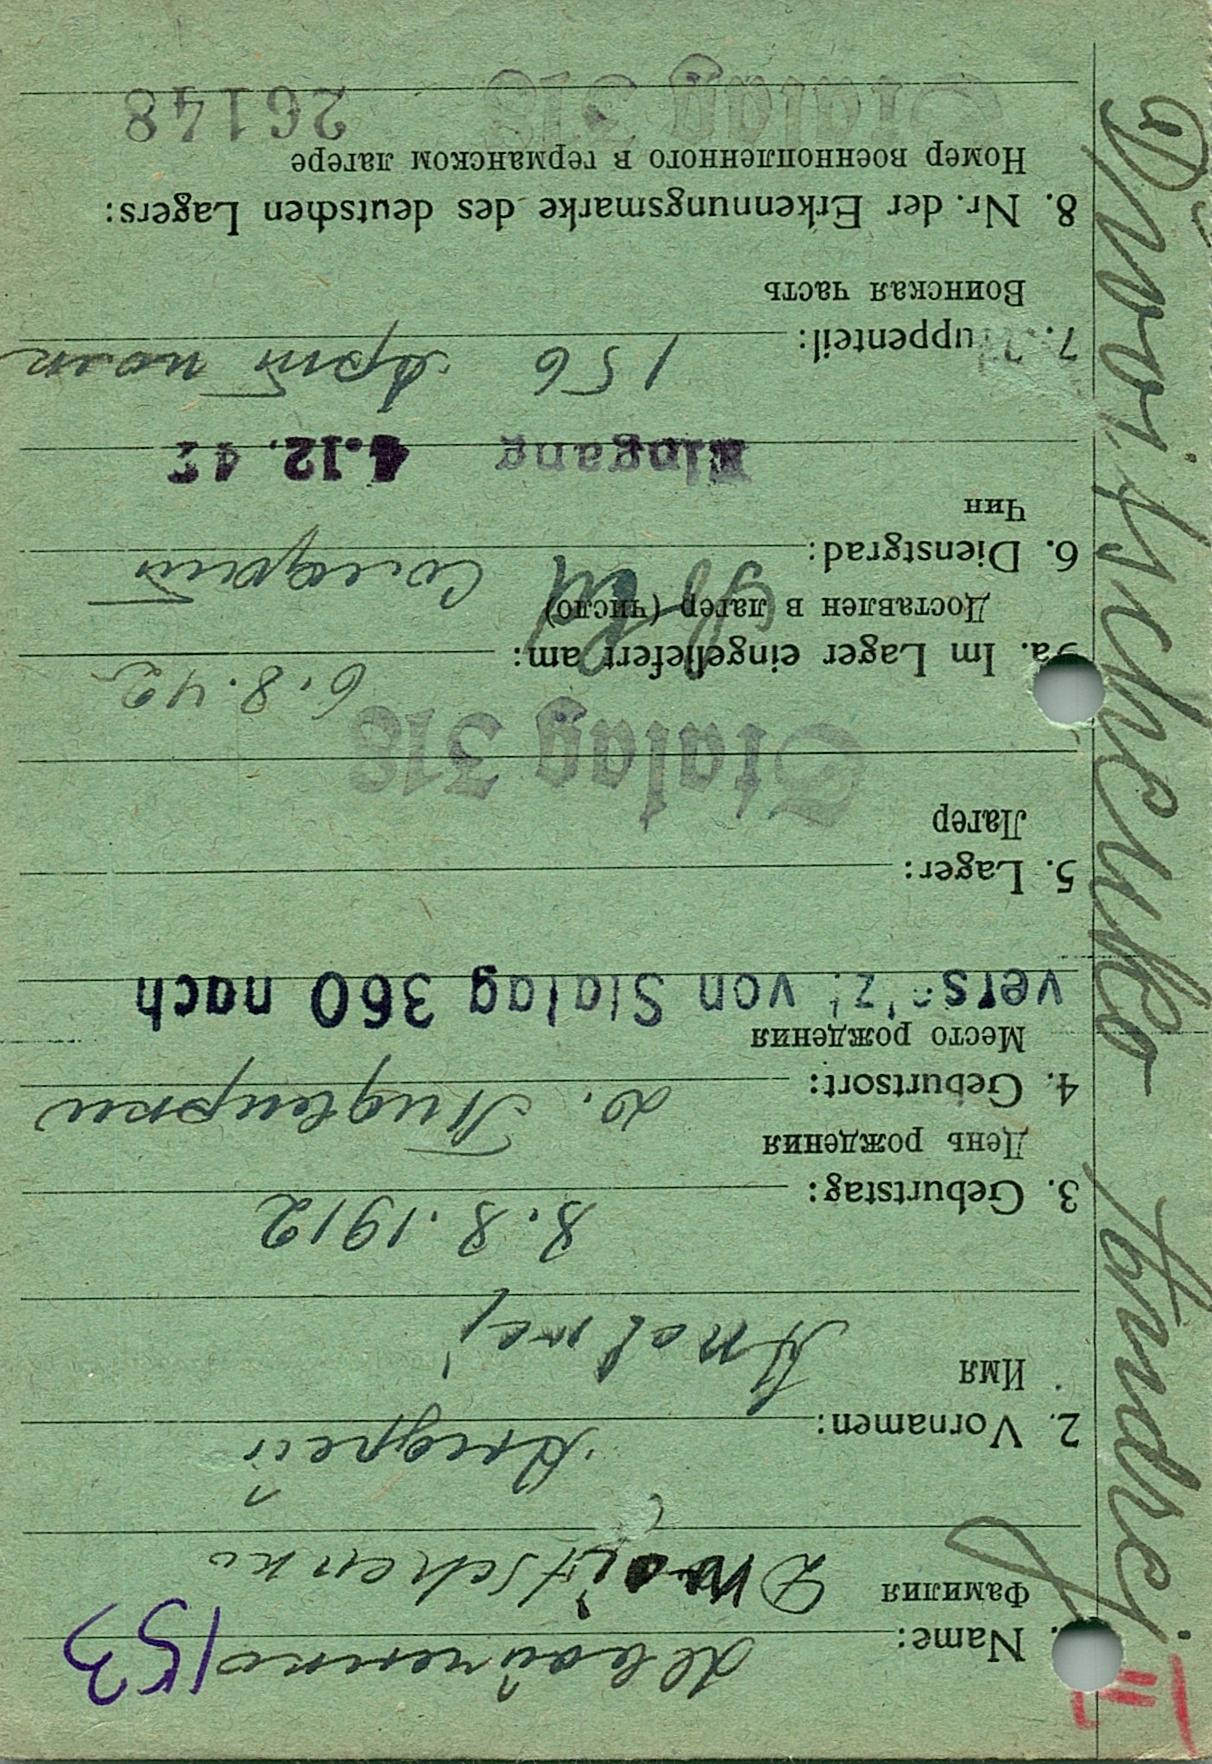 Dwoitschenko Andrej
II
153
1. Name: Двойченко
Фамилия Dwoitschenko
2. Vornamen: Андрей
Имя Andrej
3. Geburtstag: 8.8.1912
День рождения
4. Geburtsort:
Место рождения
von Stalag 360 nach
5. Lager:
Лагер
Stalag 318
5a. Im Lager eingeliefert am: 6.8.42
Доставлен в лагер (число)
6. Dienstgrad:
Чин
Eingang 4.12.42
7. Truppenteil: 156
Воинская часть
8. Nr. der Erkennungsmarke des deutschen Lagers:
Номер военнопленного в германском лагере
Stalag 318 26148